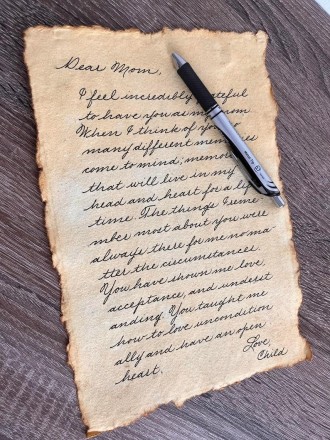 Dear Mom,
I feel incredibly grateful
to have you as my mom
When I think of you
many different memories
come to mind; memories
that will live in my
head and heart for a life
time. The things I reme
mber most about you were
always there for me no ma
tter the circumstances.
You have shown me love,
acceptance, and underst
anding. You taught me
how to love uncondition
ally and have an open
heart.
Love,
Child